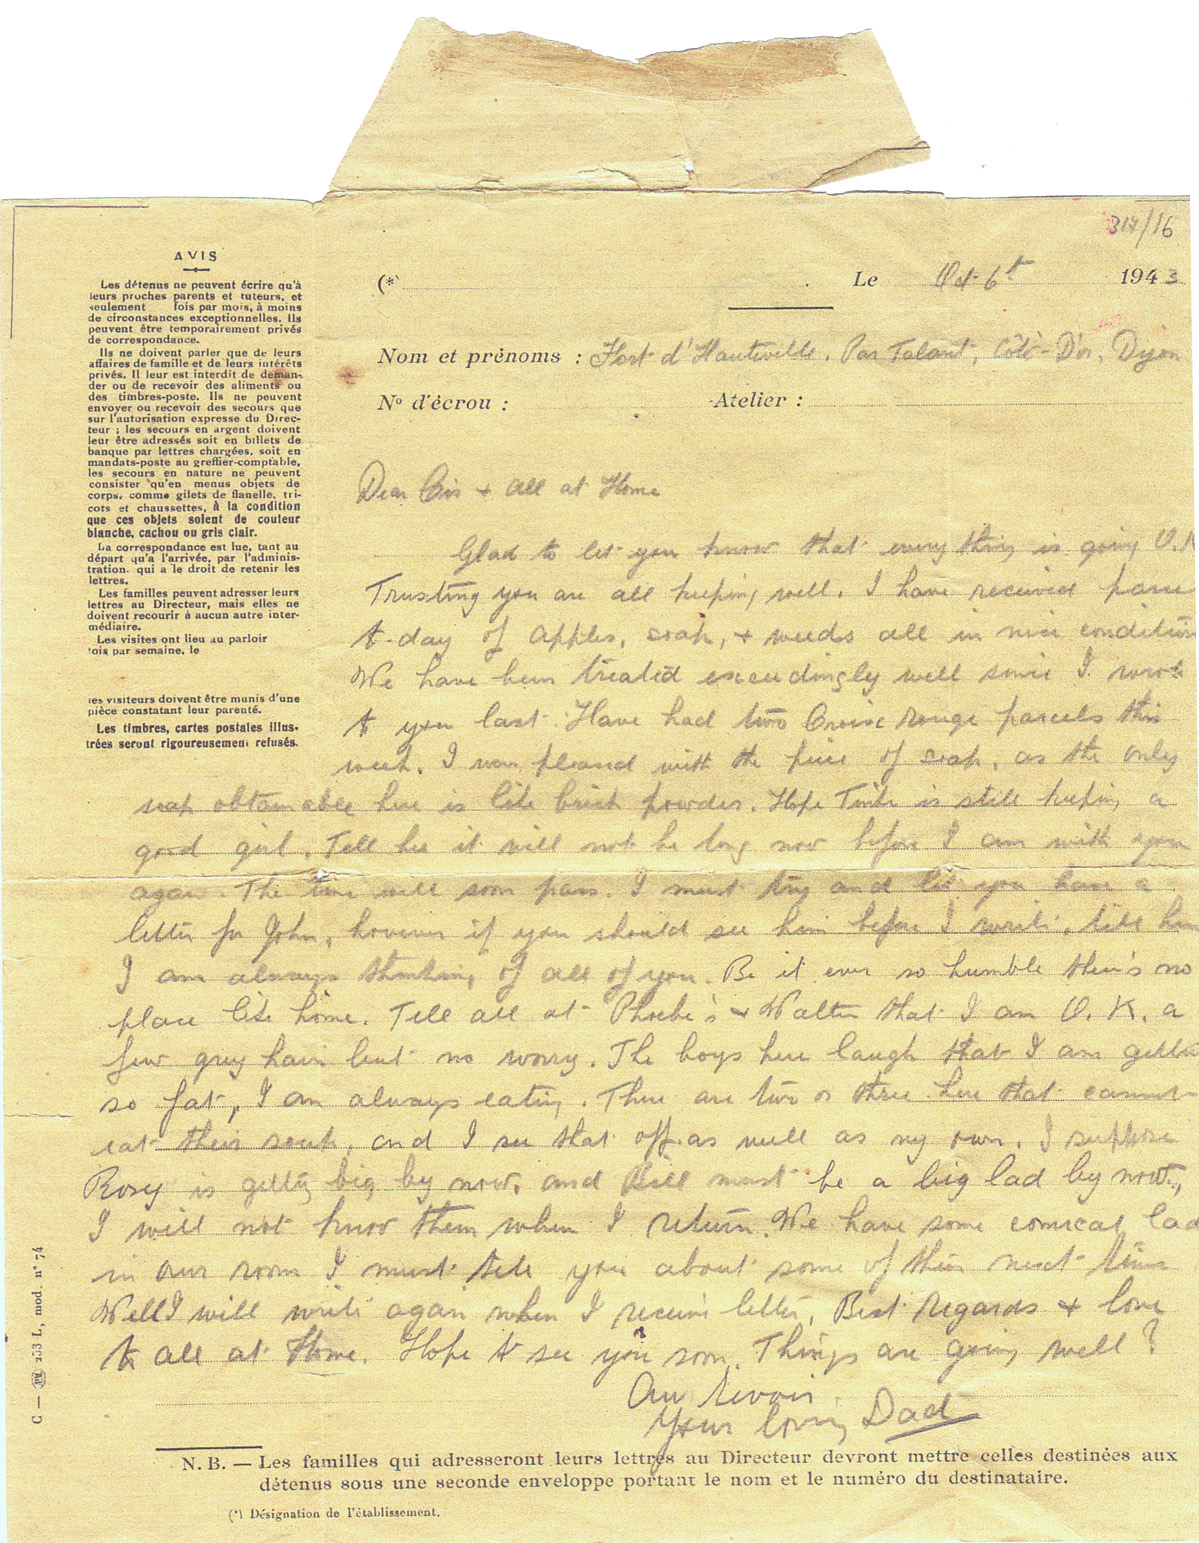 317/16
AVIS
Les détenus ne peuvent écrire qu'à
leurs proches parents et tuteurs, et
seulement fois par mois, à moins
de circonstances exceptionnelles. Ils
peuvent être temporairement privés
de correspondance.
Ils ne doivent parler que de leurs
affaires de famille et de leurs intérêts
privés. Il leur est interdit de deman-
der ou de recevoir des aliments ou
des timbres-poste. Ils ne peuvent
envoyer ou recevoir des secours que
sur l'autorisation expresse du Direc-
teur ; les secours en argent doivent
leur être adressés soit en billets de
banque par lettres chargées, soit en
mandats-poste au greffier-comptable,
les secours en nature ne peuvent
consister qu'en menus objets de
corps, comme gilets de flanelle, tri-
cots et chaussettes, à la condition
que ces objets soient de couleur
blanche, cachou ou gris clair.
La correspondance est lue, tant au
départ qu'à l'arrivée, par l'adminis-
tration qui a le droit de retenir les
lettres.
Les familles peuvent adresser leurs
lettres au Directeur, mais elles ne
doivent recourir à aucun autre inter-
médiaire.
Les visites ont lieu au parloir
fois par semaine, le
les visiteurs doivent être munis d'une
pièce constatant leur parenté.
Les timbres, cartes postales illus-
trées seront rigoureusement refusés.
(*) Le Oct 6t 1943
Nom et prénoms : Fort d'Hauteville, Par Talant, Côte-D'or, Dijon
No d'écrou : Atelier :
Dear Cis + all at Home
Glad to let you know that every thing is going O.K
Trusting you are all keeping well. I have received parce
to-day of apples, soap, + weeds all in nice condition
We have been treated exceedingly well since I wrote
to you last. Have had two Croix Rouge parcels this
week. I was pleased with the piece of soap, as the only
soap obtainable here is like brick powder. Hope is still keeping a
good girl. Tell her it will not be long now before I am with you
again. The time will soon pass. I must try and let you have a
letter for John, however if you should see him before I write, tell him
I am always thinking of all of you. Be it ever so humble there's no
place like home. Tell all at Phoebe's + Walter that I am O.K. a
few grey hairs but no worry. The boys here laugh that I am getting
so fat, I am always eating. There are two or three here that cannot
eat their soup, and I see that off as well as my own. I suppose
Rosy is getting big by now, and Bill must be a big lad by now,
I will not know them when I return. We have some comical lad
in our room I must tell you about some of them next time
Well I will write again when I receive letter, Best Regards + love
to all at Home. Hope to see you soon. Things are going well?
Au revoir.
Your loving Dad
N. B. — Les familles qui adresseront leurs lettres au Directeur devront mettre celles destinées aux
détenus sous une seconde enveloppe portant le nom et le numéro du destinataire.
(*) Désignation de l'établissement.
C — 153 L, mod. n° 74